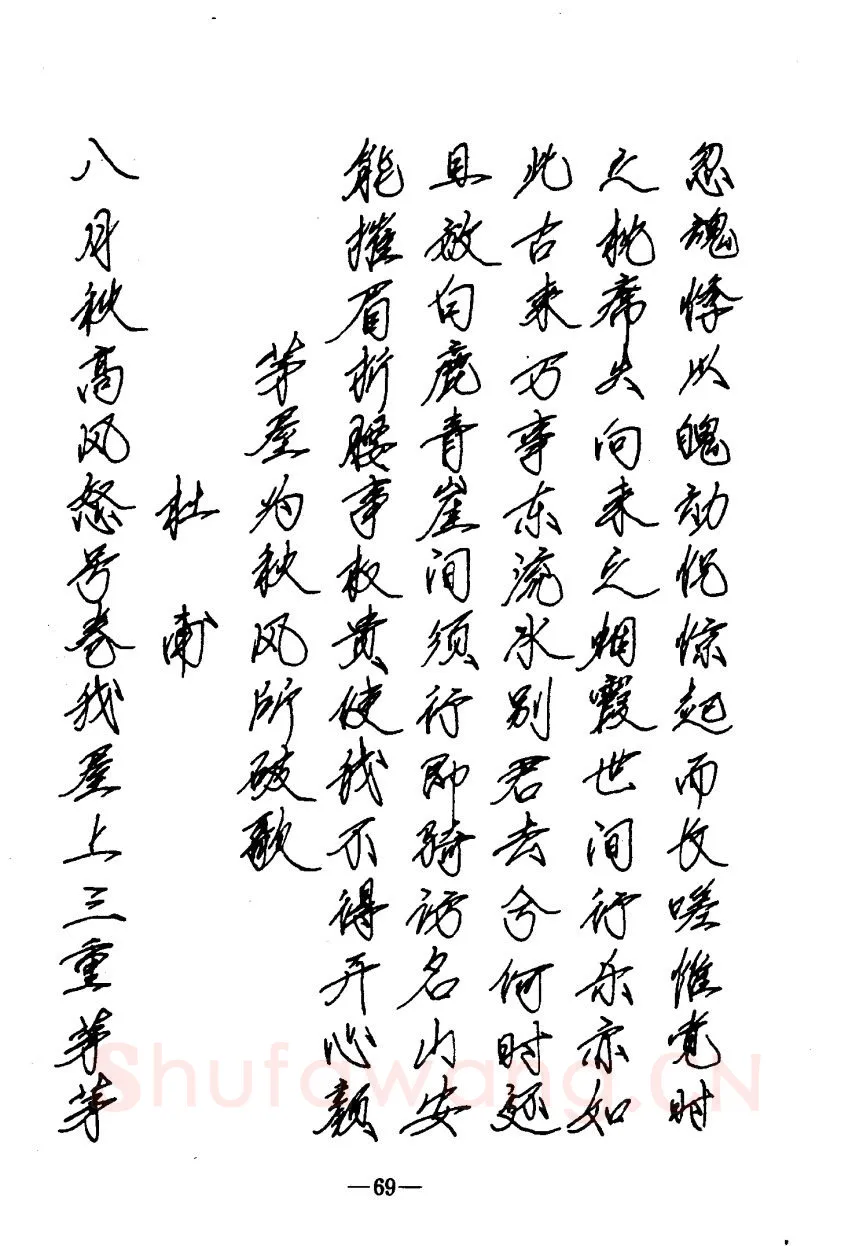 忽魂悸以魄动恍惊起而长嗟惟觉时
之枕席失向来之烟霞世间行乐亦如
此古来万事东流水别君去兮何时还
且放白鹿青崖间须行即骑访名山安
能摧眉折腰事权贵使我不得开心颜
茅屋为秋风所破歌
杜甫
八月秋高风怒号卷我屋上三重茅茅
Shufawang.CN
—69—